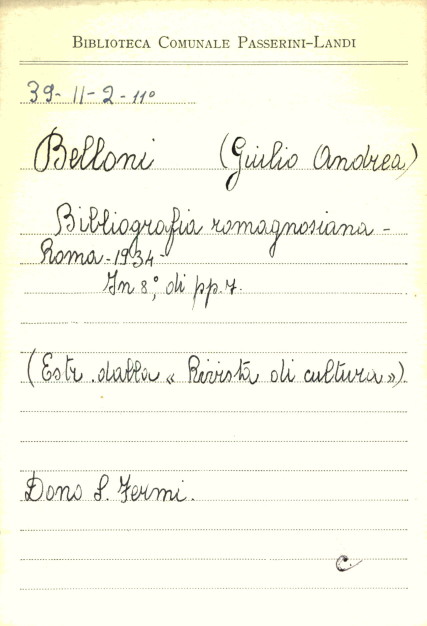 BIBLIOTECA COMUNALE PASSERINI-LANDI
39-11-2-11°
Belloni (Giulio Andrea)
Bibliografia romagnosiana -
Roma - 1934 -
In 8°, di pp. 7.
(Estr. dalla « Rivista di cultura »).
Dono S. Fermi.
C.